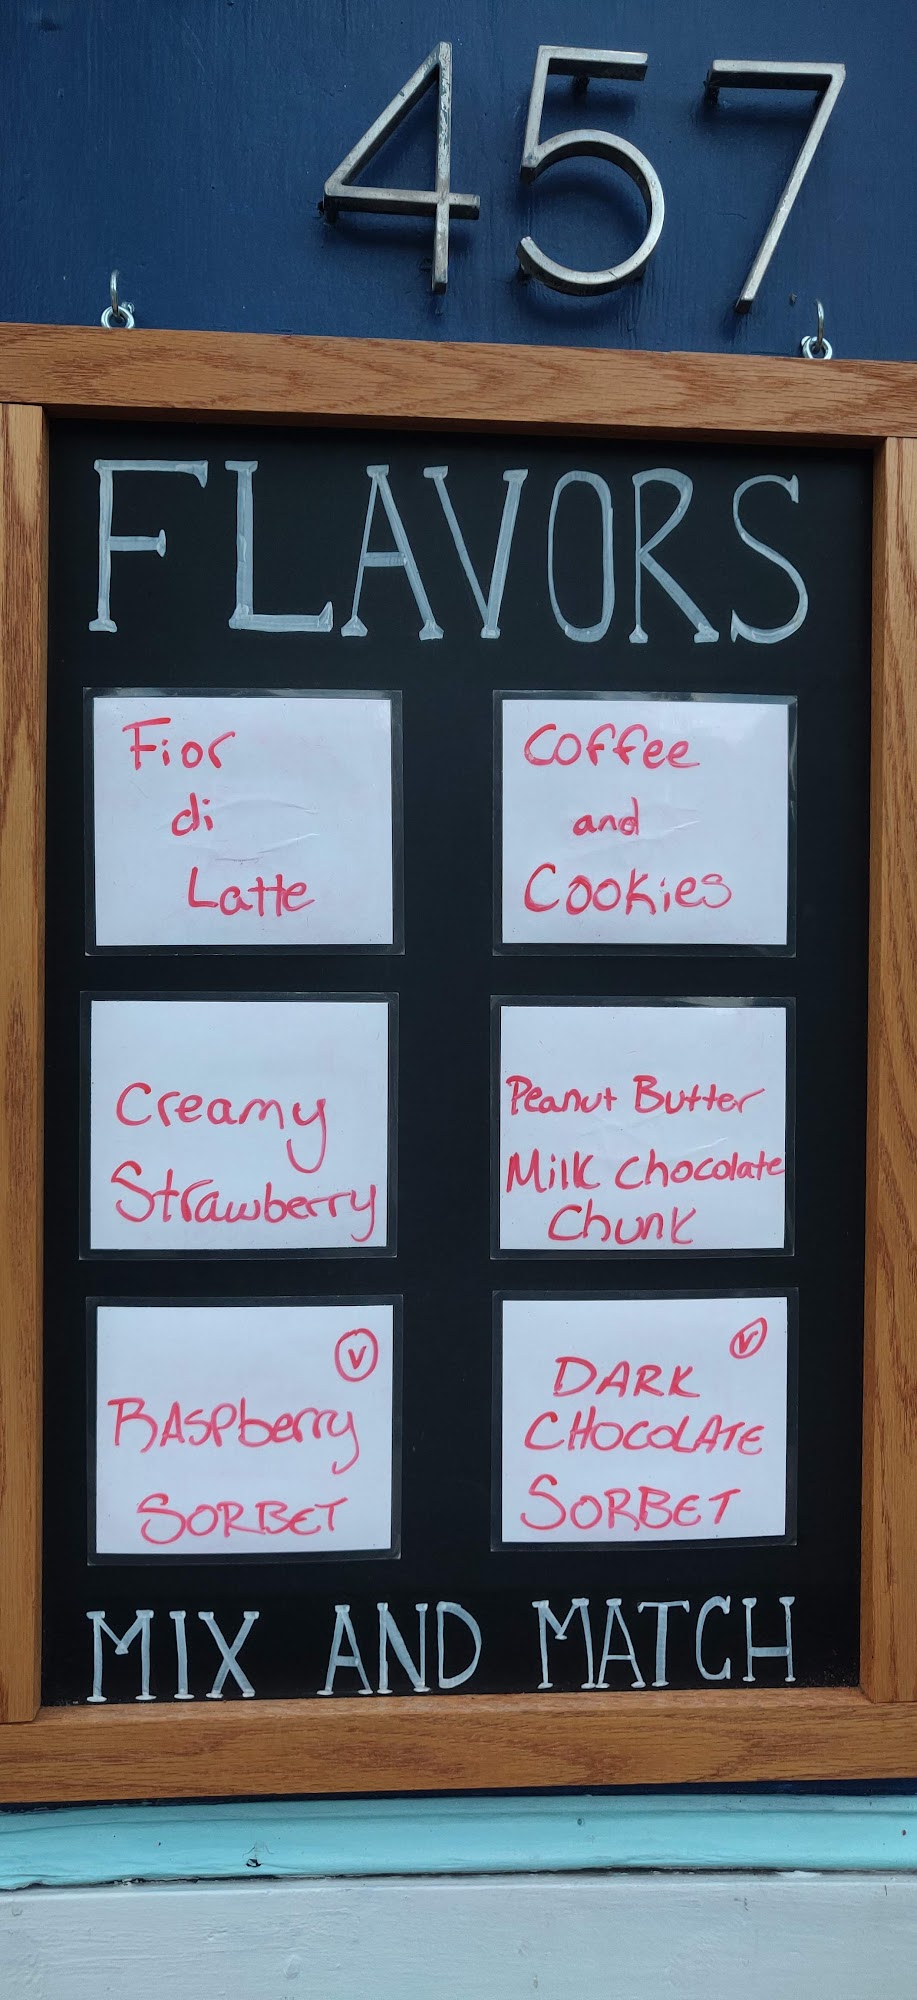 457
FLAVORS
Fior
di
Latte
Coffee
and
Cookies
Creamy
Strawberry
Peanut Butter
Milk Chocolate
Chunk
V
RASPberry
SORBET
V
DARK
CHOCOLATE
SORBET
MIX AND MATCH